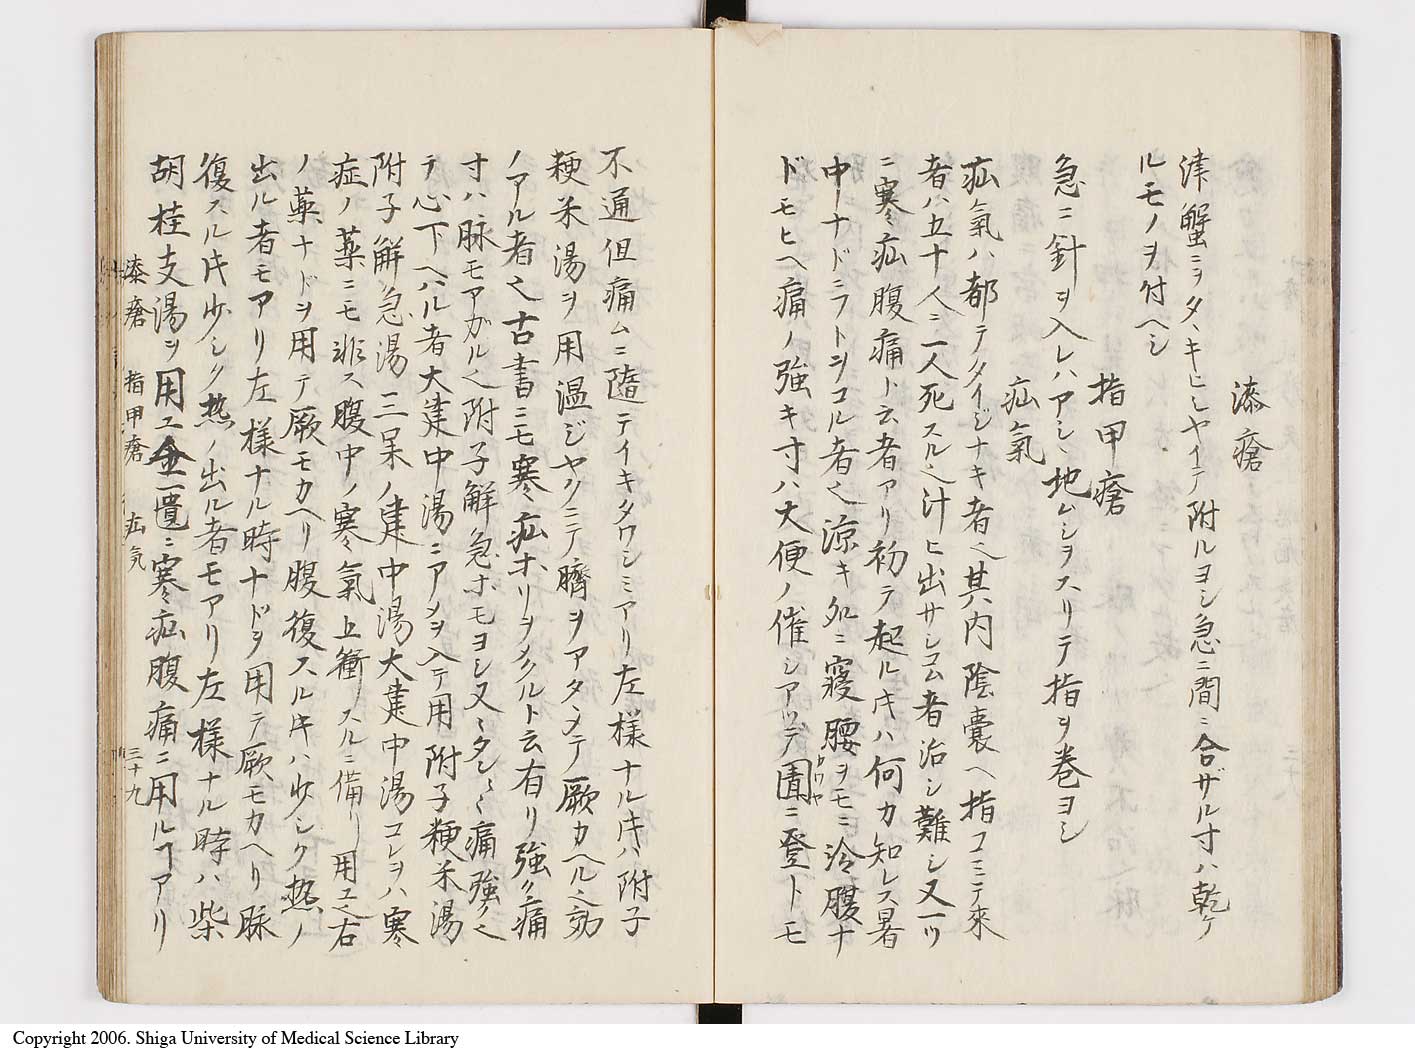 漆瘡
津蟹ニヲタヽキヒシヤイテ附ルヨシ急ニ間ニ合ザル寸ハ乾タ
ルモノヲ付ヘシ
指甲瘡
急ニ針ヲ入レハアシヽ地ムシヲスリテ指ヲ巻ヨシ
疝氣
疝氣ハ都テタイジナキ者也其内陰囊ヘ指コミテ來
者ハ五十人ニ一人死スル也汁ヒ出サシコム者治シ難シ又一ツ
ニ寒疝腹痛ト云者アリ初テ起ル𪜈ハ何カ知レス暑
中ナドニフトヲコル者也涼キ処ニ寢腰ヲモニ冷腹ナ
ドモヒヘ痛ノ強キ寸ハ大便ノ催シアツテ圊ニ登トモ
カワヤ
不通但痛ムニ隨テイキタワシミアリ左様ナル𪜈ハ附子
粳米湯ヲ用温ジヤクニテ臍ヲアタヽメテ厥カヘル也効
ノアル者也古書ニモ寒疝ホリヲメクルト云有リ強ク痛
寸ハ脉モアガル也附子解急ホモヨシ又ニタシヽ痛強ク也
テ心下ヘハル者大建中湯ニアメヲ入テ用附子粳米湯
附子解急湯三果ノ建中湯大建中湯コレヲハ寒
症ノ薬ニモ非ス腹中ノ寒氣上衝スルニ備リ用ユ也右
ノ薬ナドヲ用テ厥モカヘリ腹復スル𪜈ハ少シク熱ノ
出ル者モアリ左様ナル時ナドヲ用テ厥モカヘリ脉
復スル𪜈少シク熱ノ出ル者モアリ左様ナル時ハ柴
胡桂支湯ヲ用ユ金匱ニ寒疝腹痛ニ用ルヿアリ
漆瘡 指甲瘡 疝気 三十九
Copyright 2006. Shiga University of Medical Science Library